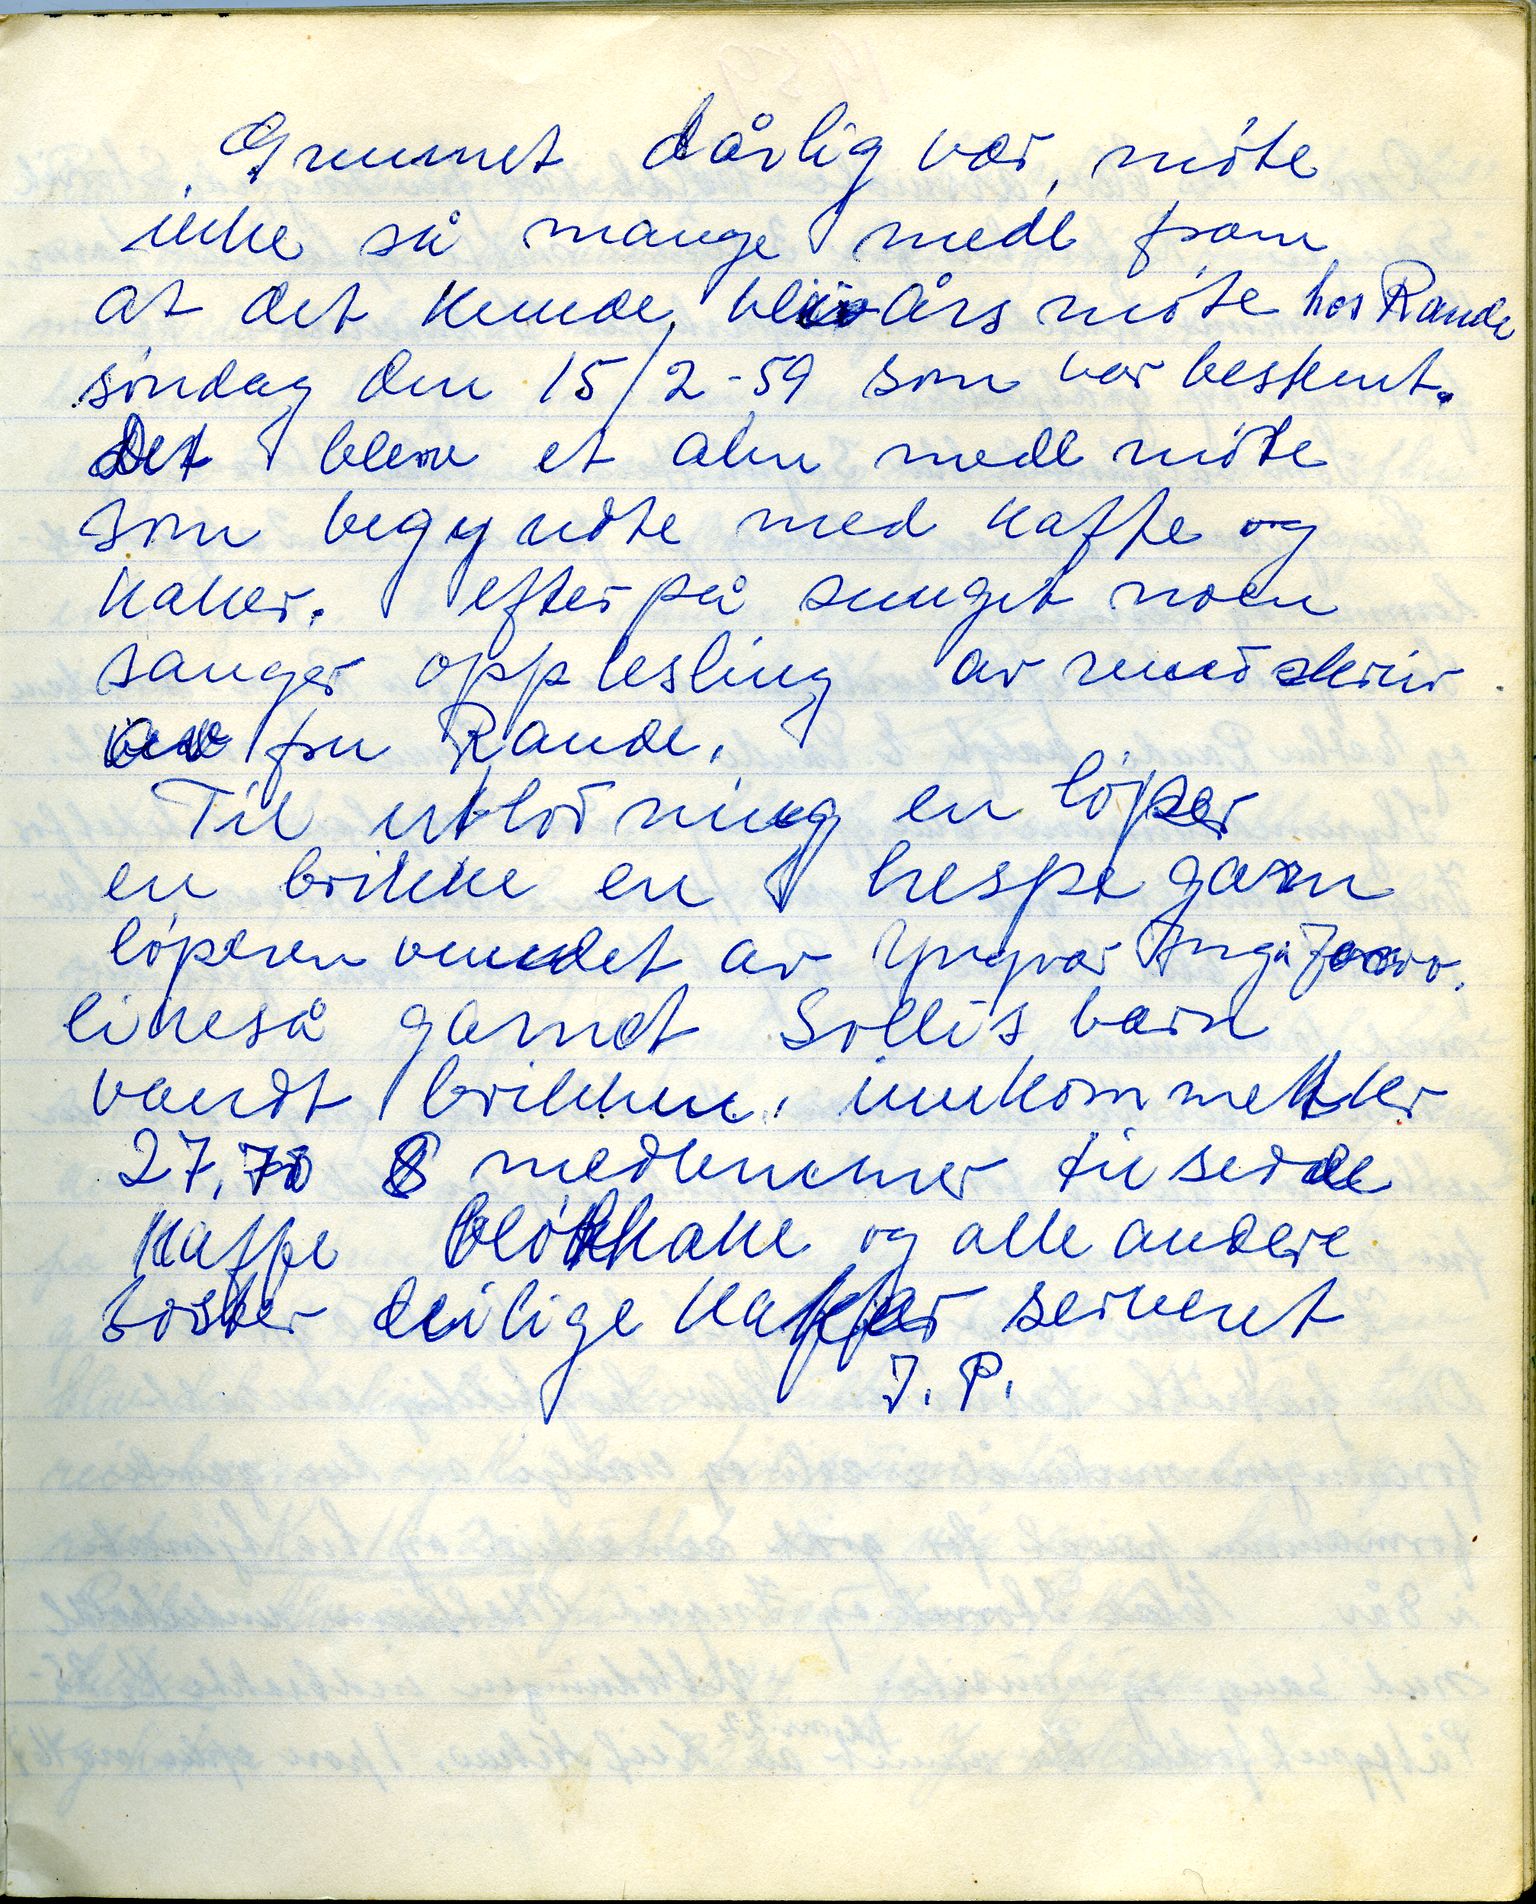 Grunnet dårlig vær, møte
ikke så mange medl fram
at det kunde bli års møte hos Rande
søndag den 15/2-59 som var bestemt.
Det blew et alm medl møte
som begyndte med kaffe og
kaker. efterpå sunget noen
sanger opplesling av
av fru Rande.
Til utlodning en løper
en brikke en hespe garn
løperen vundet av Yngvar Inga
likeså garnet Solli's barn
vandt brikken. innkommet kr
27,70 8 medlemmer til sede
Kaffe bløtkake og alle andere
sorter deilige kaker servert
J. P.